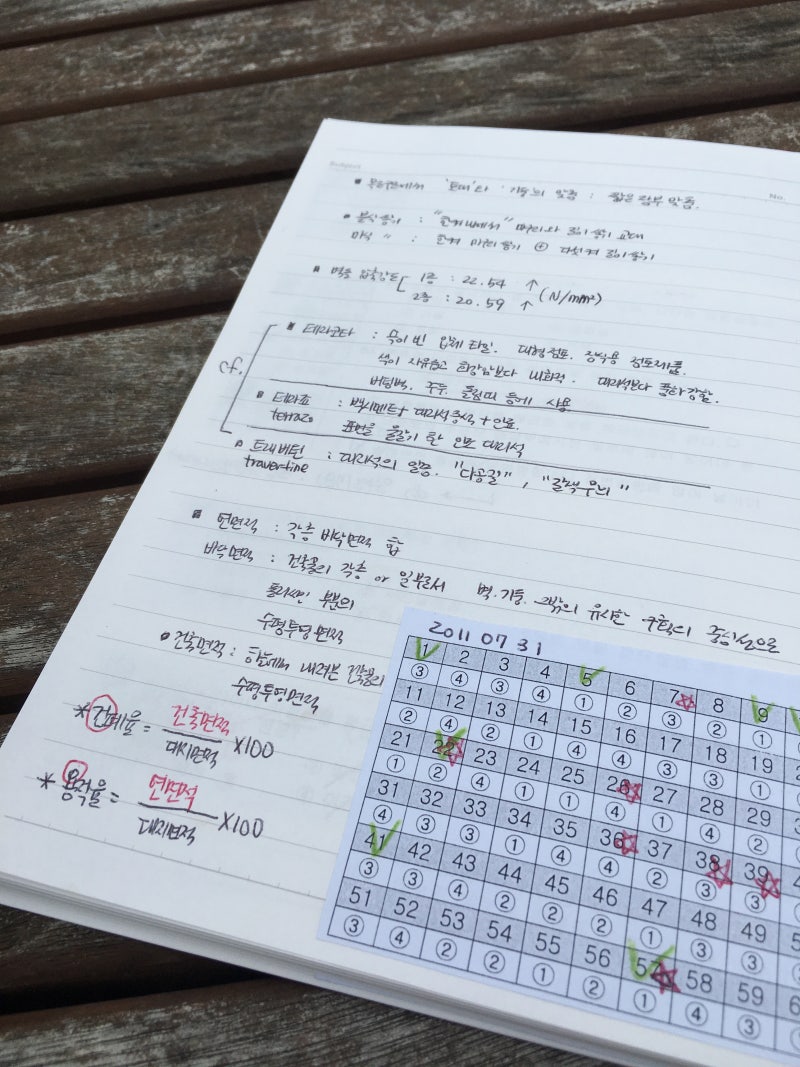 Subject
No.
▪ 목조건에서 '토대'와 '기둥'의 맞춤 : 짧은 장부 맞춤.
▪ 불식쌓기 : "한켜내에서" 마구리와 길이쌓기 교대
미식 〃 : 한켜 마구리쌓기 ⊕ 다섯켜 길이쌓기
▪ 벽돌 압축강도 1종 : 22.54 ↑ (N/mm²)
2종 : 20.59 ↑
cf.
▪ 테라코타 : 속이 빈 입체 타일. 대형점토. 장식용 점토제품.
색이 자유롭고 화강암보다 내화적. 대리석보다 풍화강함.
버팀벽, 주두, 돌림띠 등에 사용
▪ 테라죠 : 백시멘트 + 대리석종석 + 안료.
terrazo 표면을 물갈기 한 인조 대리석
▪ 트래버틴 : 대리석의 일종. "다공질", "갈색무늬"
travertine
▪ 연면적 : 각층 바닥면적 합
바닥면적 : 건축물의 각층 or 일부로서 벽.기둥. 그밖의 유사한 구획의 중심선으로
둘러싸인 부분의
수평투영면적
• 건축면적 : 하늘에서 내려본 건축물의
수평투영면적
* 건폐율 = 건축면적 / 대지면적 X100
* 용적율 = 연면적 / 대지면적 X100
2011 07 31
1 2 3 4 5 6 7 8 9
③ ④ ③ ④ ① ② ③ ② ①
11 12 13 14 15 16 17 18 19
② ④ ② ① ④ ④ ③ ③ ①
21 22 23 24 25 26 27 28 29
① ② ④ ① ① ④ ① ④ ②
31 32 33 34 35 36 37 38 39
④ ③ ③ ① ④ ④ ② ③ ③
41 42 43 44 45 46 47 48 49
③ ③ ④ ② ② ② ① ③ ③
51 52 53 54 55 56 57 58 59
③ ④ ② ② ① ② ① ④ ③